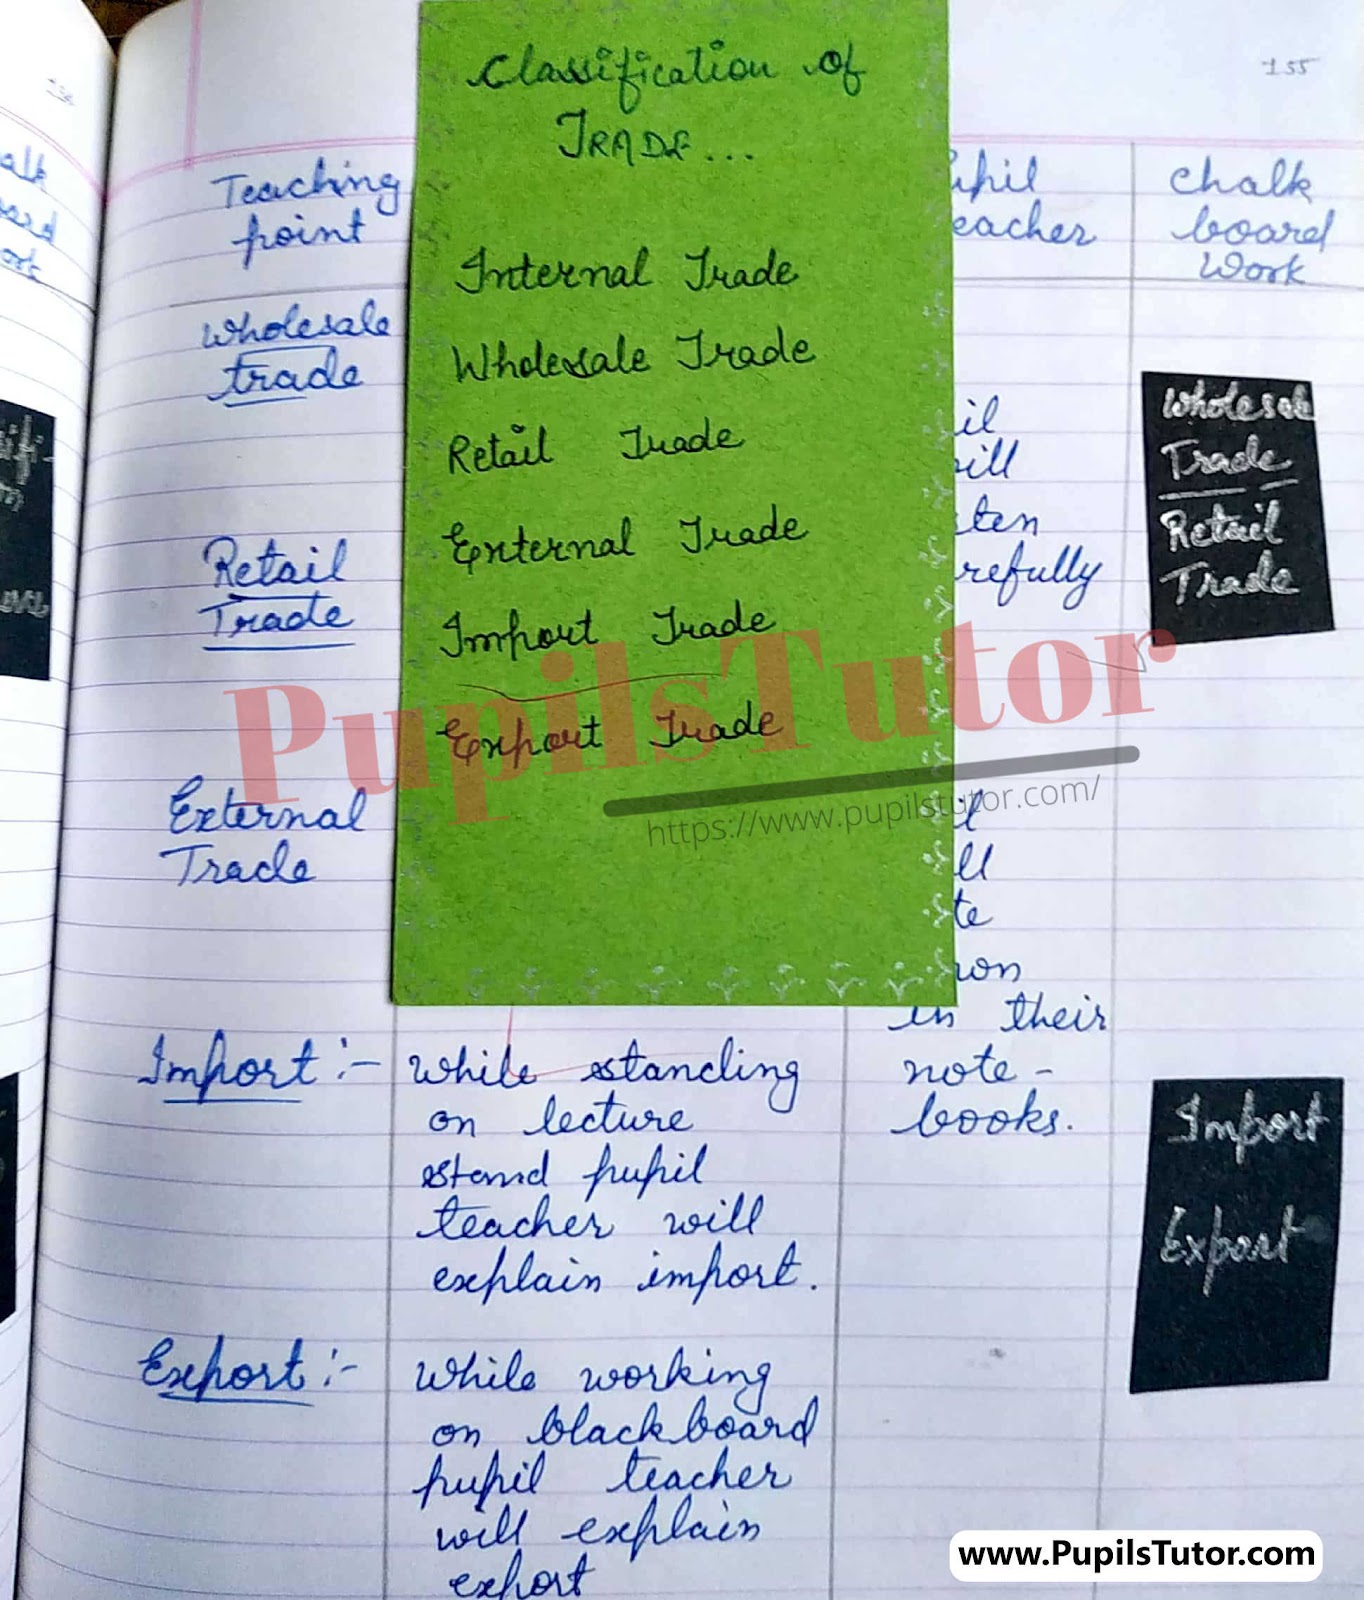 155
Classification of
TRADE...
Internal Trade
Wholesale Trade
Retail Trade
External Trade
Import Trade
Export Trade
Teaching
point
Wholesale
trade
Retail
Trade
External
Trade
Import :-
Export :-
While standing
on lecture
stand pupil
teacher will
explain import.
While working
on blackboard
pupil teacher
will explain
export
upil
eacher
il
ill
ten
refully
ll
te
in their
note-
books.
Chalk
board
Work
Wholesale
Trade
Retail
Trade
Import
Export
PupilsTutor
https://www.pupilstutor.com/
www.PupilsTutor.com